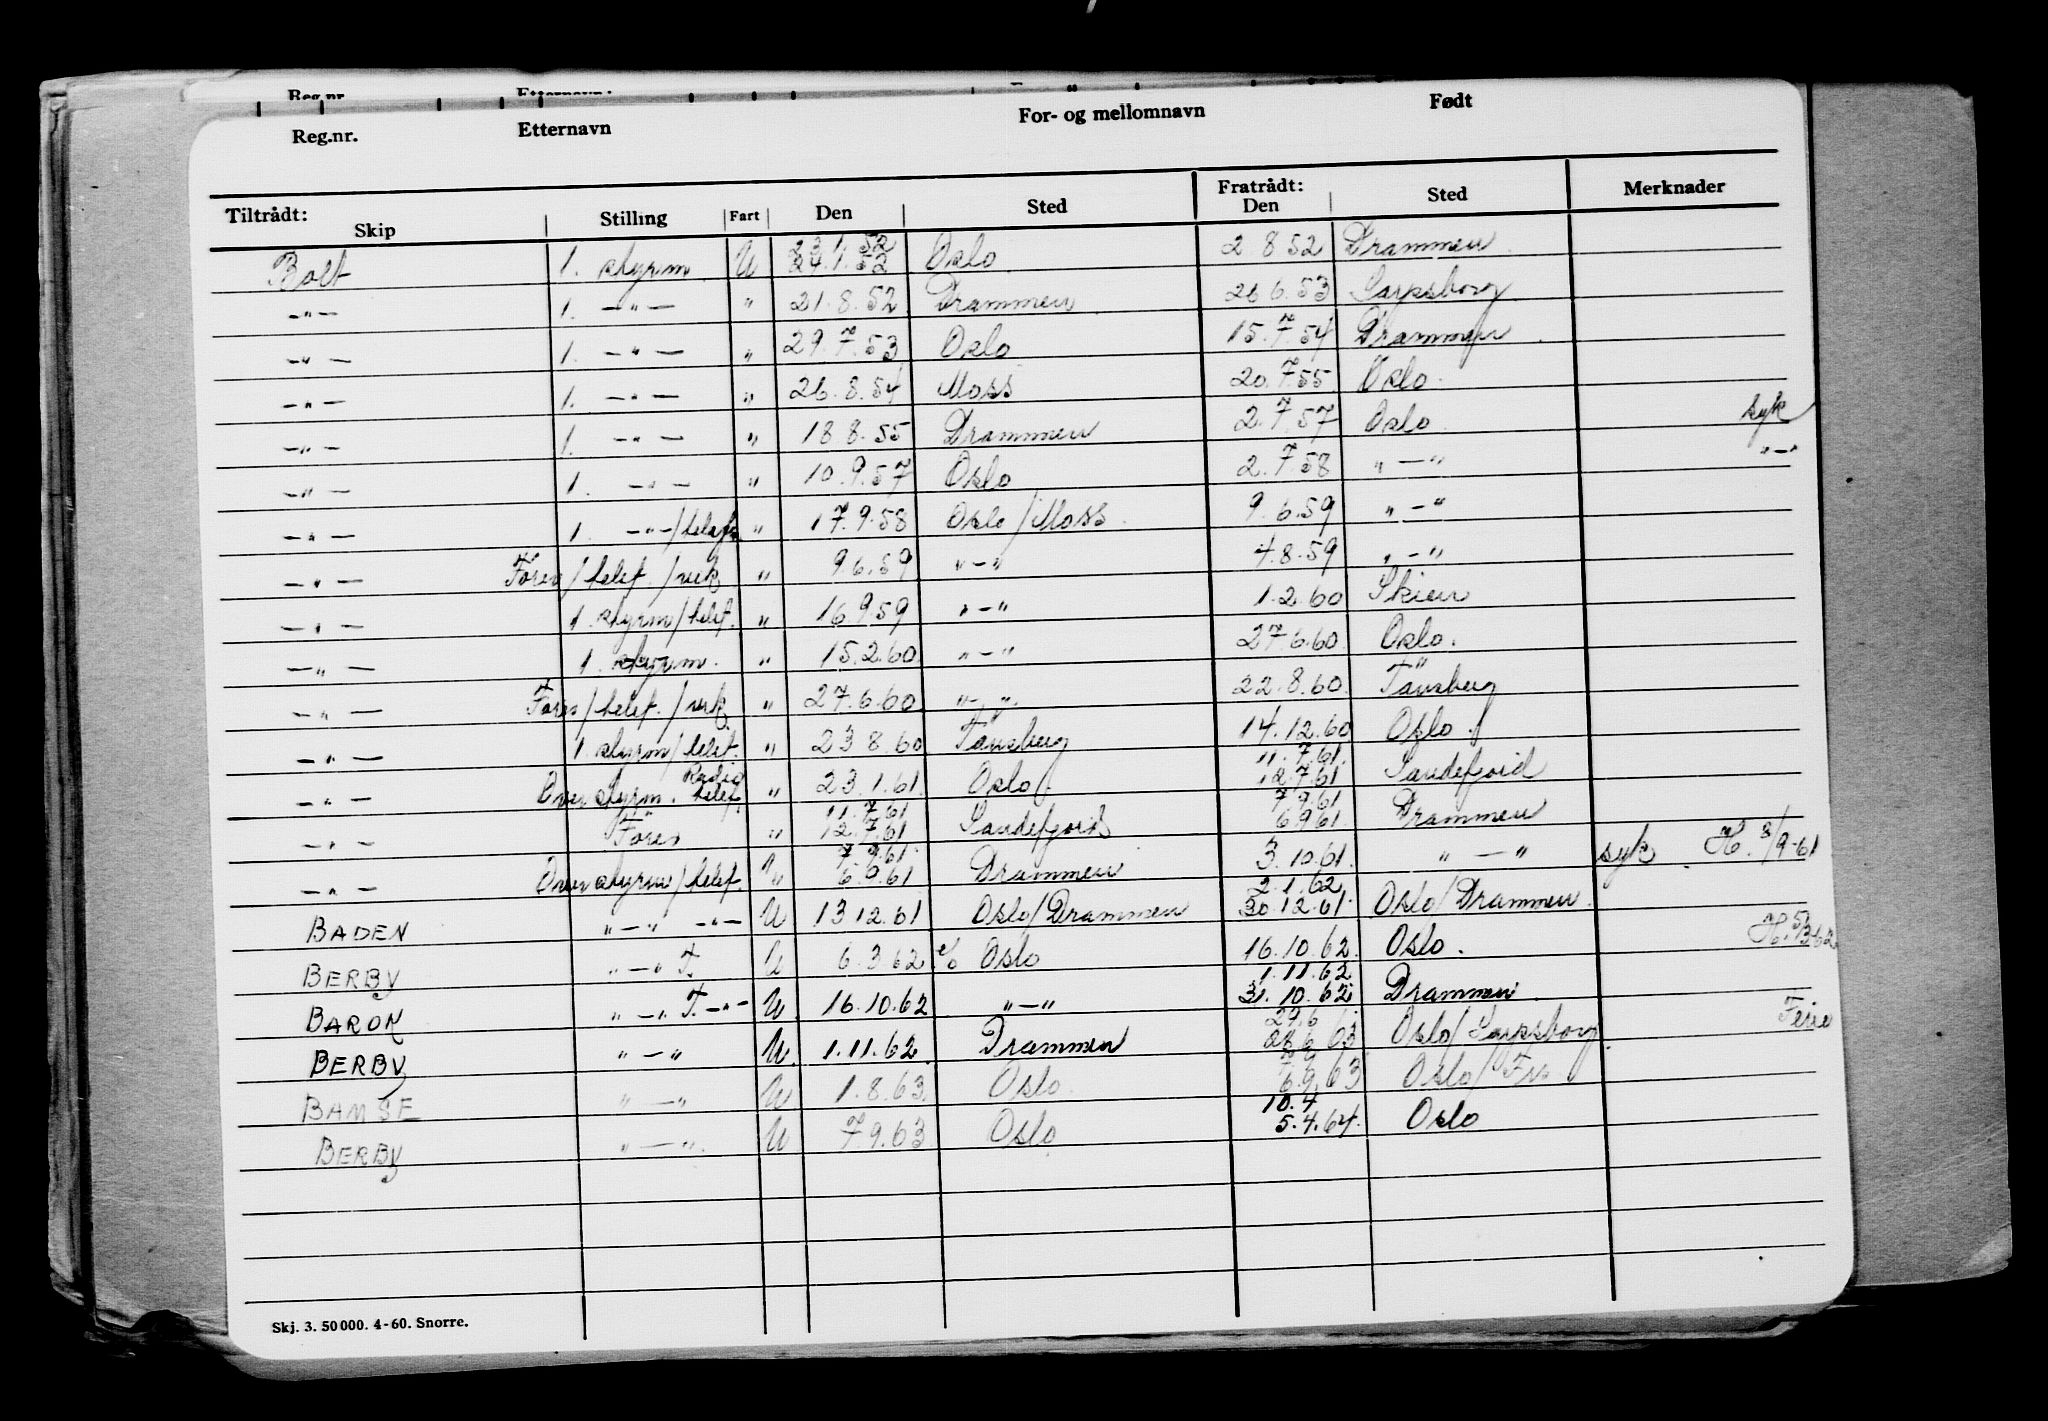 Reg.nr. Etternavn
Reg.nr. Etternavn For- og mellomnavn Født
Tiltrådt: Skip Stilling Fart Den Sted Fratrådt: Den Sted Merknader
Bolt 1. styrm U 23.1.52 24.1.52 Oslo 2 8 52 Drammen
-"- 1. -"- " 21.8.52 Drammen 26 6.53 Sarpsborg
-"- 1. -"- " 29.7.53 Oslo 15.7.54 Drammen
-"- 1. -"- " 26.8.54 Moss 20.7.55 Oslo
-"- 1. -"- " 18 8.55 Drammen 2.7.57 Oslo syk
-"- 1. -"- " 10.9.57 Oslo 2.7.58 "-" "-"
-"- 1. -"-/telef. " 17.9.58 Oslo/Moss 9.6.59 "-"
-"- Förer/telef./vik " 9.6.59 "-" 4.8.59 "-"
-"- 1. styrm/telef. " 16 9.59 "-" 1.2.60 Skien
-"- 1. styrm. " 15.2.60 "-" 27.6.60 Oslo.
-"- Förer/telef./vik " 27.6.60 "-" 22.8.60 Tönsberg
-"- 1 styrm/telef. " 23 8.60 Tönsberg 14.12.60 Oslo.
-"- Over styrm. Radio telef. " 23.1.61 Oslo 11.7.61. 12.7.61 Sandefjord
-"- Förer " 11.7.61 12.7.61 Sandefjord 7.9.61 6.9.61. Drammen
-"- Over styrm/telef. U 7.9.61 6.9.61 Drammen 3.10.61. "-" syk. H. 3/9-61
BADEN "-" -"- U 13 12.61 Oslo/Drammen 2.1.62 30.12.61. Oslo/Drammen.
BERBY "-" T. U 6.3.62 Oslo 16.10.62. Oslo. H. 5/3-62
BARON "-" T. -"- U 16.10.62 "-" 1.11.62 31.10.62 Drammen
BERBY "-" U. 1.11.62. Drammen 29.6 28 6 63 Oslo/Sarpsborg. Ferie
BAMSE "-" U 1.8.63. Oslo. 6.9.63 Oslo/
BERBY "-" U 7.9.63 Oslo 10.4 5.4.64. Oslo
Skj. 3. 50 000. 4-60. Snorre.